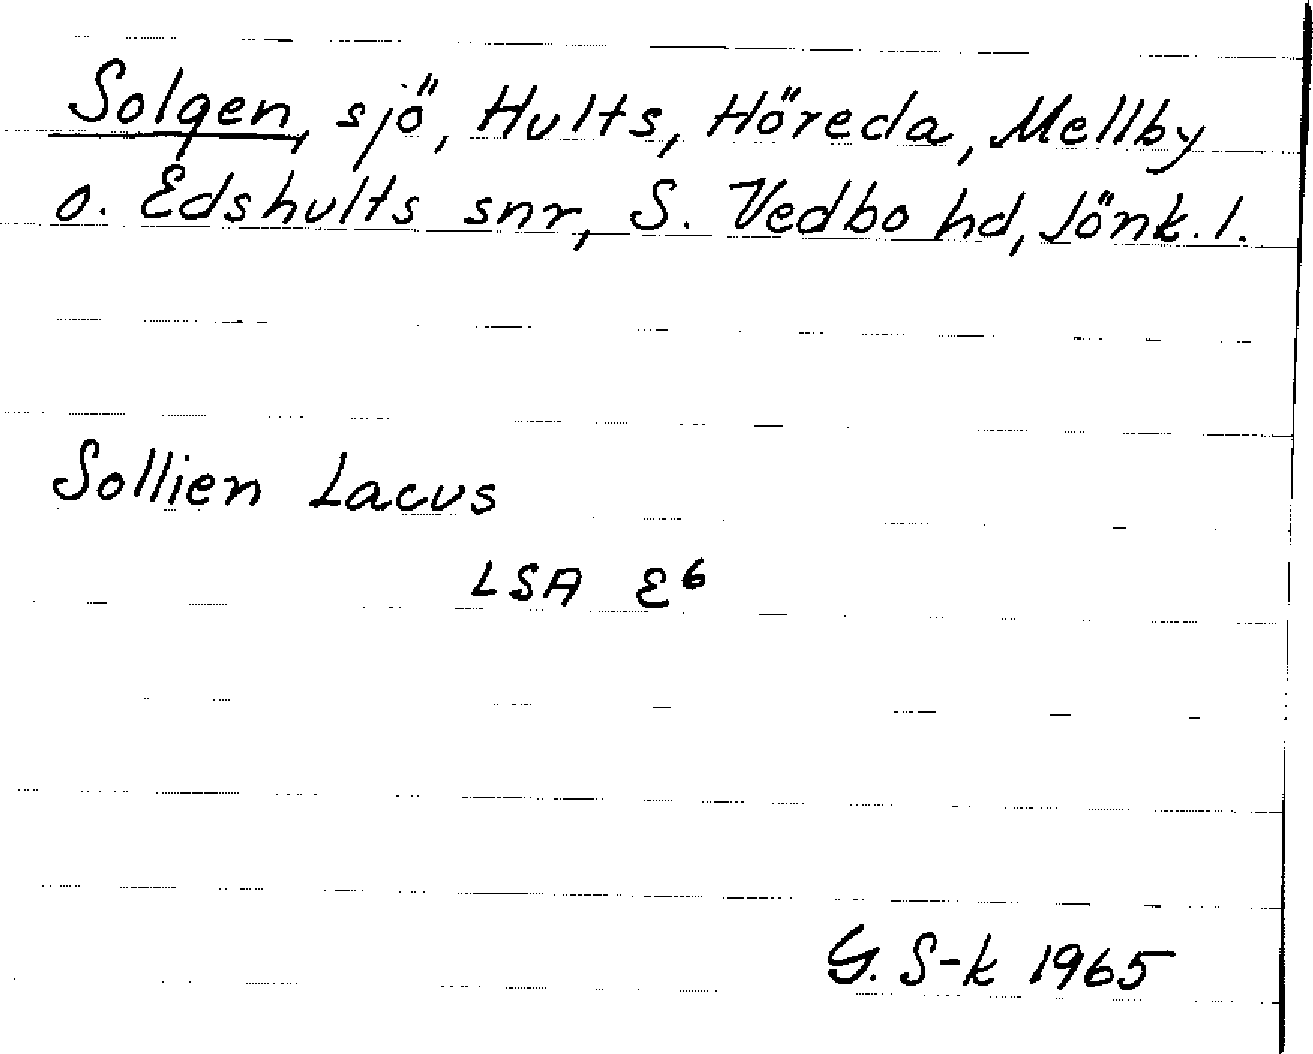 Solgen, sjö, Hults, Höreda, Mellby
o. Edshults snr, S. Vedbo hd, Jönk. l.
Sollien Lacus
LSA E6
G. S-k 1965